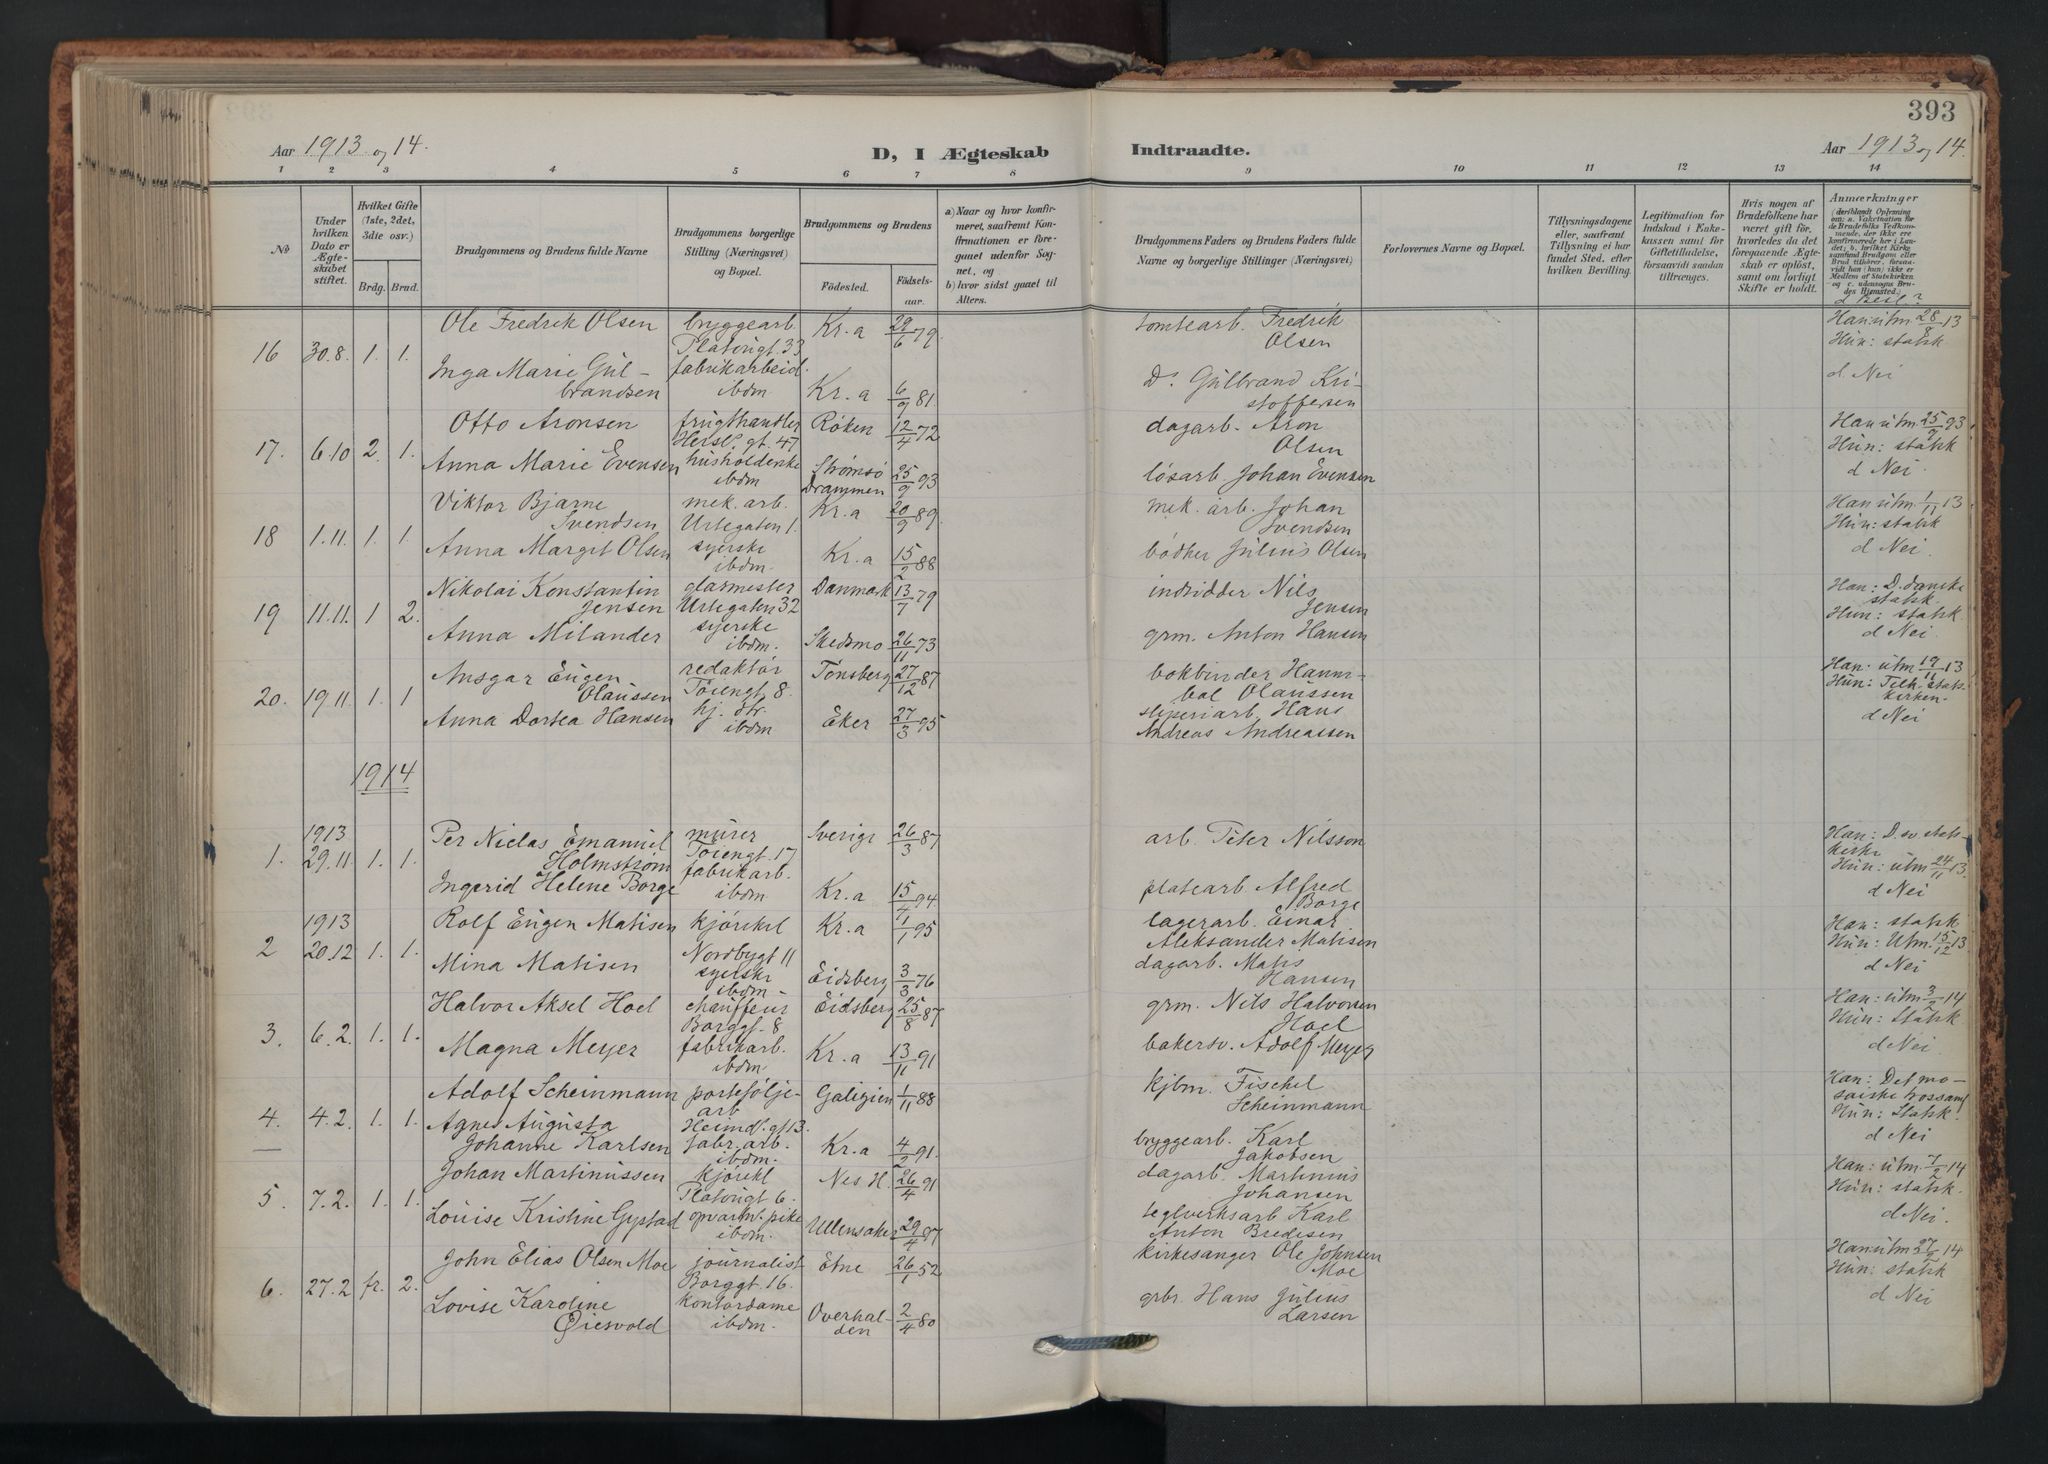 393
Aar 1913 og 14.
D, I Ægteskab Indtraadte.
Aar 1913 og 14.
1 2 3 4 5 6 7 8 9 10 11 12 13 14
No
Under hvilken Dato er Ægteskabet stiftet.
Hvilket Gifte (1ste, 2det, 3die osv.)
Brdg. Brud.
Brudgommens og Brudens fulde Navne
Brudgommens borgerlige Stilling (Næringsvei) og Bopæl.
Brudgommens og Brudens
Födested. Födsels-aar.
a) Naar og hvor konfirmeret, saafremt Konfirmationen er foregaaet udenfor Sognet, og
b) hvor sidst gaaet til Alters.
Brudgommens Faders og Brudens Faders fulde Navne og borgerlige Stillinger (Næringsvei)
Forlovernes Navne og Bopæl.
Tillysningsdagene eller, saafremt Tillysning ei har fundet Sted, efter hvilken Bevilling.
Legitimation for Indskud i Enkekassen samt for Giftetilladelse, forsaavidt saadan tiltrænges.
Hvis nogen af Brudefolkene har været gift för, hvorledes da det foregaaende Ægteskab er oplöst, samt om lovligt Skifte er holdt.
Anmærkninger
d Besl?
Ole Fredrik Olsen bryggearb. Kr.a 29/6 79 tomtearb. Fredrik Han: utm. 28/8 13
Platougt. 33 Olsen Hun: statsk
16 30.8. 1. 1. Inga Marie Gul- fabrikarbeid. D. Gulbrand Kri- d. Nei
brandsen ibdm Kr.a 6/9 81. stoffersen
Otto Aronsen frugthandler Røken 12/4 72 dagarb. Aron Han utm. 25/9 93
Hersl. gt. 47 Olsen Hun: statsk
17. 6.10 2. 1. Anna Marie Evensen husholderske Strømsø 25/9 93 løsarb. Johan Evensen d Nei
ibdm Drammen
Viktor Bjarne mek. arb. Kr.a 20/9 89. mek. arb. Johan Han utm 1/11 13
Svendsen Urtegaten 1. Svendsen Hun: statsk
18 1.11. 1. 1. Anna Margit Olsen syerske Kr.a 15/2 88 bødker Julius Olsen d Nei.
ibdm.
Nikolai Konstantin glarmester Danmark 13/7 79 indridder Nils Han: D. danske
Jensen Urtegaten 32 Jensen statsk.
19 11.11. 1 2. Anna Milander syerske Skedsmo 26/11 73 grm. Anton Hansen Hun: statsk.
ibdm. d Nei.
Ansgar Eugen redaktør Tønsberg 27/12 87 bokbinder Hanni- Han: utm 19/11 13
Olaussen Tøiengt. 8. bal Olaussen Hun: Tilh. stats-
20. 19.11. 1. 1 Anna Dortea Hansen hj. dtr. Eker 27/3 95 sliperiarb. Hans kirken.
ibdm Andreas Andreassen d Nei
1914
1913 Per Niclas Emanuel murer Sverige 26/3 87 arb. Peter Nilsson Han: D. sv. stats-
1. 29.11. 1. 1. Holmstrøm Tøiengt. 17 kirke
Ingerid Helene Borge fabrikarb. Kr.a 15/4 94 platearb. Alfred Hun: utm 24/11 13.
ibdm Borge d Nei
1913 Rolf Eugen Matisen kjørekl Kr.a 1/1 95 lagerarb. Einar Han: statsk
2 20.12 1. 1. Nordbygt 11 Aleksander Matisen Hun: Utm. 15/12 13
Mina Matisen syerske Eidsberg 3/3 76 dagarb. Mats d Nei
ibdm Hansen
Halvor Aksel Hoel chauffeur Eidsberg 25/8 87 grm. Nils Halvorsen Han: utm 3/2 14
Borggt. 8 Hoel Hun: Statsk
3. 6.2. 1. 1. Magna Meyer fabrikarb. Kr.a 13/11 91 bakersv. Adolf Meyer d Nei.
ibdm
Adolf Scheinmann portefølje- Galizien 1/11 88 kjbm. Fischel Han: Det mo-
arb Scheinmann saiske trossamf
4. 4.2. 1. 1. Agnes Augusta Heimd. gt 13. Hun: Statsk.
Johanne Karlsen fabr. arb. Kr.a 4/2 91. bryggearb. Karl d Nei
ibdm. Jakobsen
Johan Martinussen kjørekl Nes H. 26/4 91 dagarb. Martinius Han: utm. 7/2 14
Platougt 6. Johansen Hun: statsk.
5. 7.2. 1. 1. Louise Kristine Gystad opvartn. pike Ullensaker 29/4 87 teglverksarb Karl d Nei.
ibdm. Anton Bredesen
John Elias Olsen Moe journalist Etne 26/1 52 kirkesanger Ole Johnsen Han: utm 27/2 14
Borggt 16. Moe Hun: statsk
6. 27.2 fr. 2. Lovise Karoline kontordame Overhal- 2/4 80 grbr. Hans Julius d Nei
Øiesvold ibdm. den Larsen